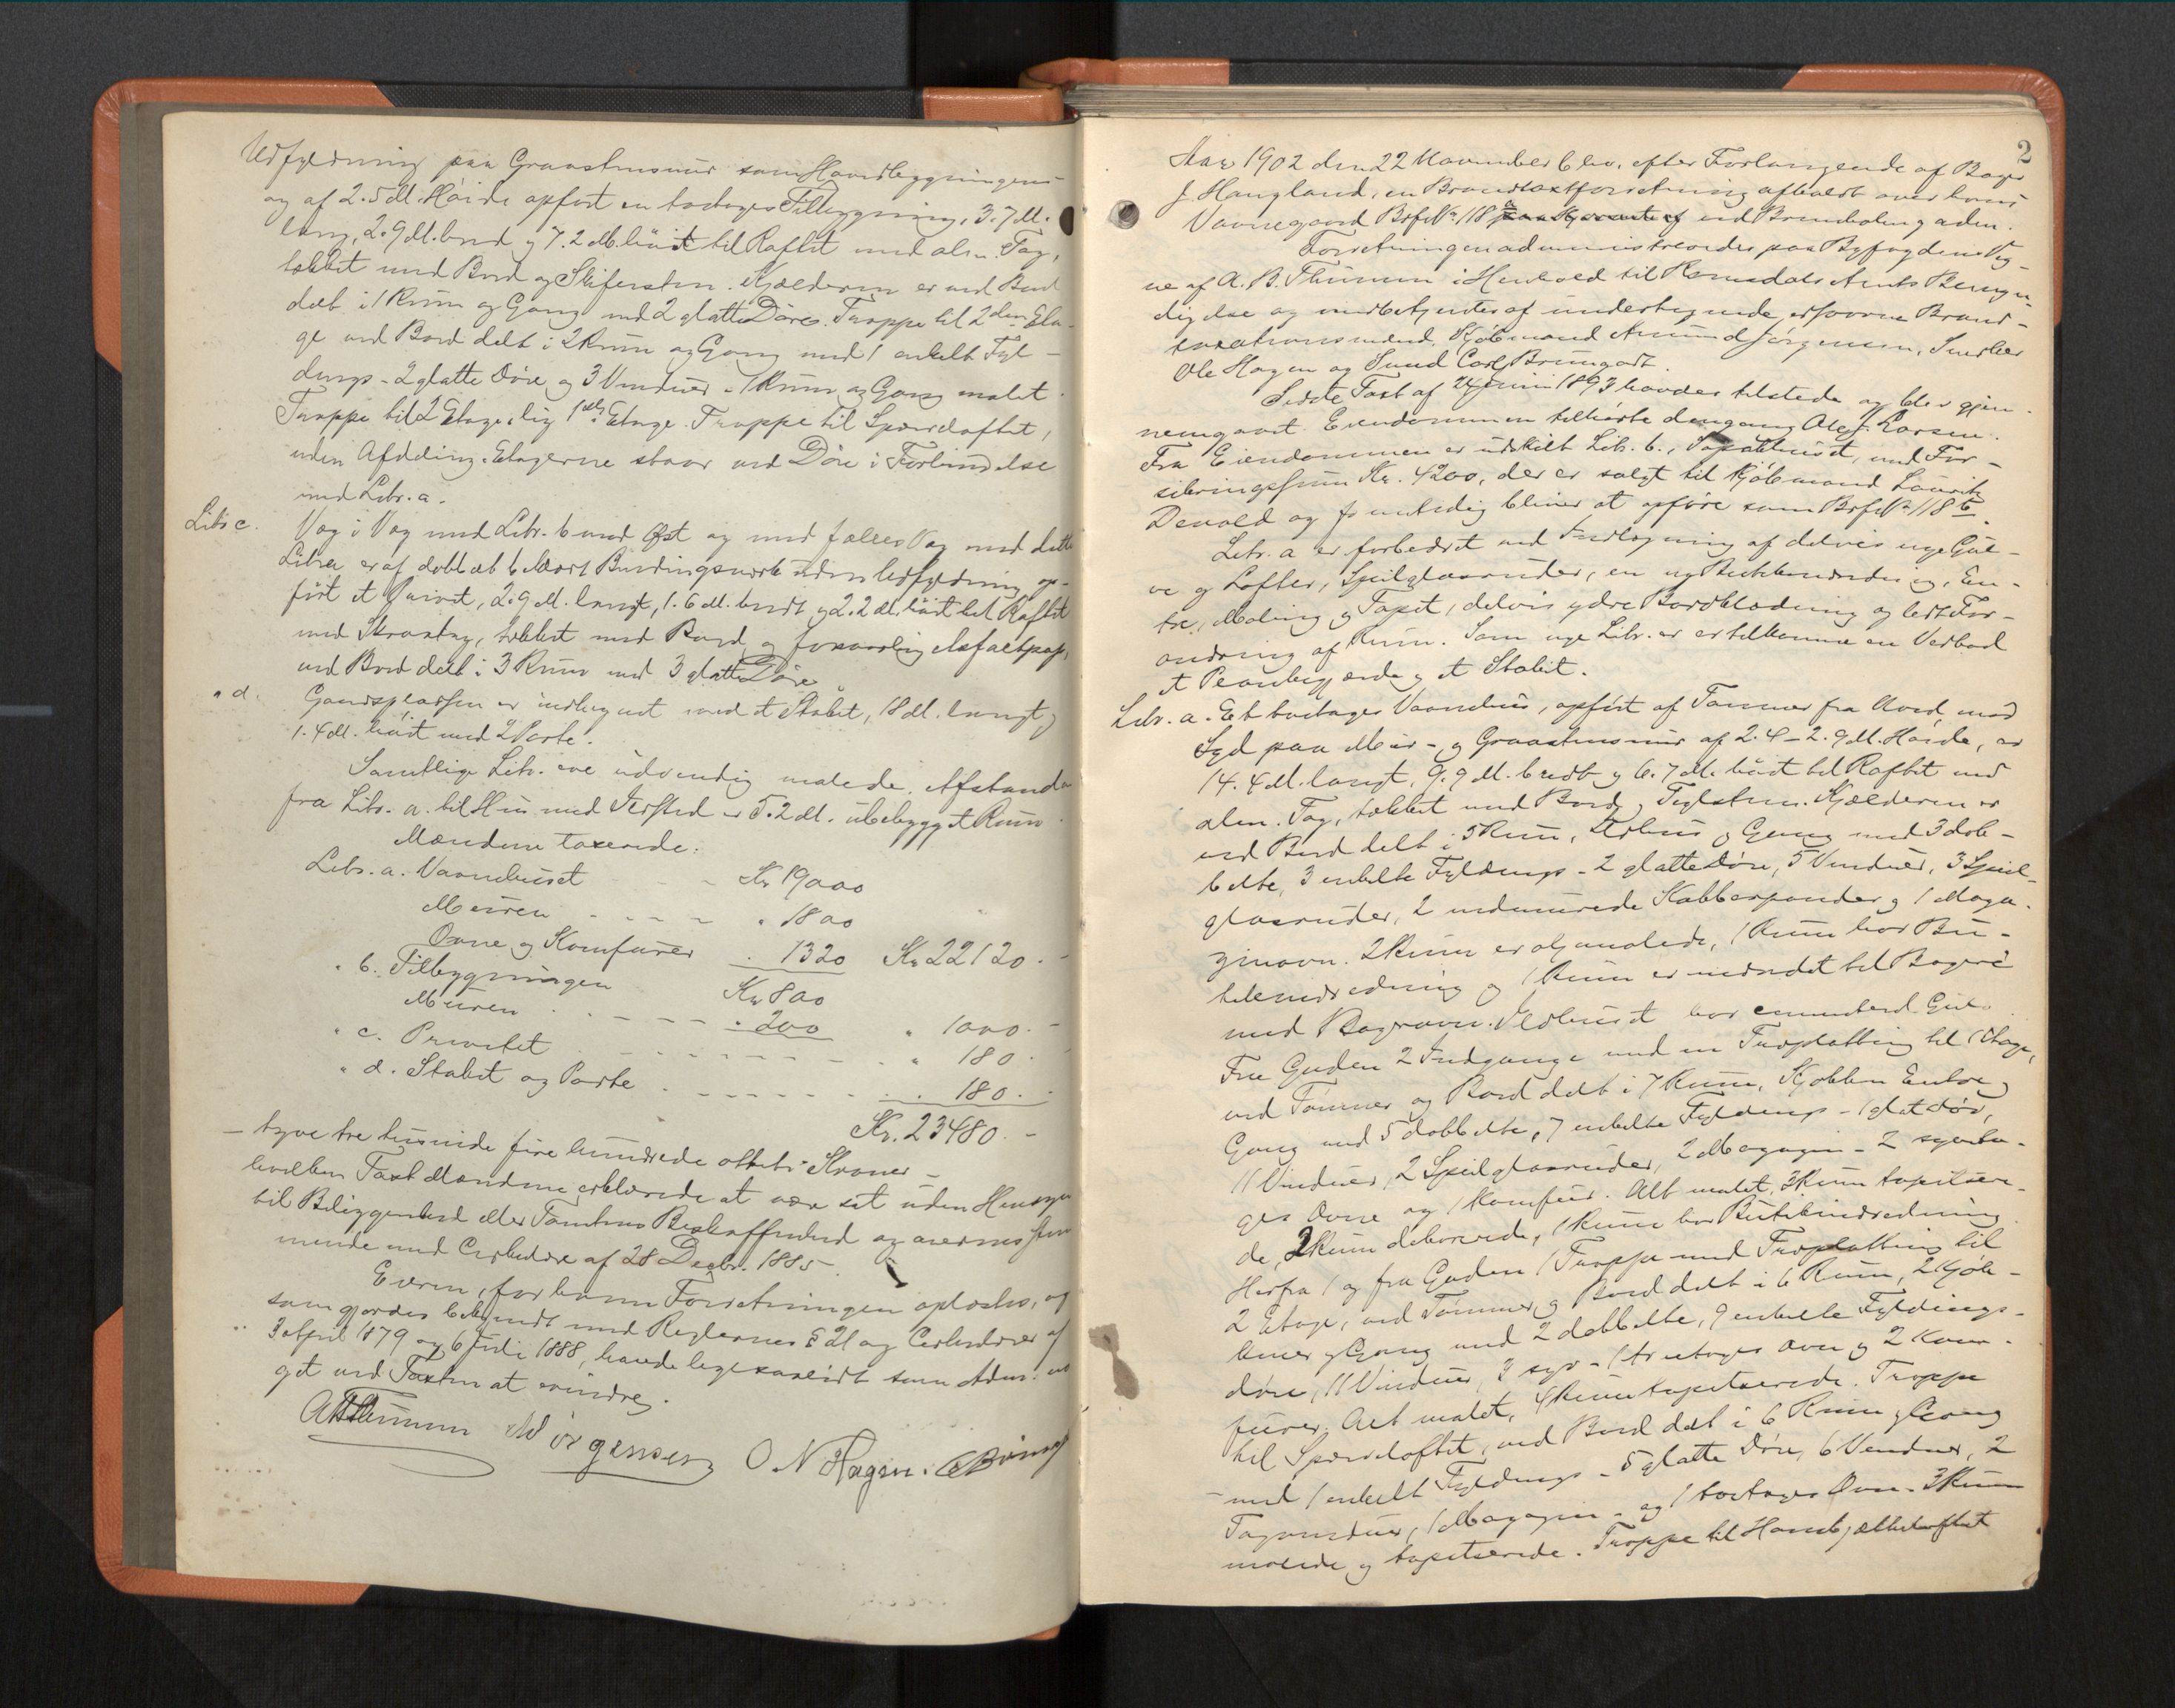 Udfyldning paa Graastensmur som Hovedbygningens
og af 2.5 M. Høide opført en toetages Tilbygning, 3.7 M.
lang, 2.9 M. bred og 7.2 M. høit til Raftet med alm. Tag,
tækket med Bord og Skifersten. Kjælderen er ved Bord
delt i 1 Rum og Gang med 2 glatte Døre. Trappe til 2den Eta-
ge ved Bord delt i 2 Rum og Gang med 1 enkelt Fyl-
dings- 2 glatte Døre og 3 Vinduer. 1 Rum og Gang malet.
Trappe til 2 Etage, lig 1ste Etage. Trappe til Spærreloftet,
uden Afdeling. Etagerne staar ved Døre i Forbindelse
med Litr. a.
Litr. c. Væg i Væg med Litr. b mod Øst og med fælles Væg med dette
Litra er af dobbelt bordklædt Bindingsværk uden Udfyldning op-
ført et Privet, 2.9 M. langt, 1.6 M. bredt og 2.2 M. høit til Raftet
med Skraatag, tækket med Bord og forsvarlig Asfaltpap,
ved Bord delt i 3 Rum med 3 glatte Døre.
" d. Gaardspladsen er indhegnet med et Stakit, 18 M. langt og
1.4 M. høit med 2 Porte.
Samtlige Litr. ere udvendig malede. Afstanden
fra Litr. a. til Hus med Ildsted er 5.2 M. ubebygget Rum.
Mændene taxerede:
Litr. a. Vaanehuset - - Kr 19000
Muren - - - - " 1800
Ovne og Komfurer " 1320 Kr 22120. -
" b. Tilbygningen Kr 800
Muren - - - - " 200 " 1000. -
" c. Privetet - - - - - - " 180. -
" d. Stakit og Porte - - - - - - " 180. -
Kr. 23480. -
- tyve tre tusinde fire hundrede otteti Kroner -
hvilken Taxt Mændene erklærede at være sat uden Hensyn
til Beliggenhed eller Tomtens Beskaffenhed og overensstem
mende med Cirkulære af 28 Decbr. 1885.
Eieren, for hvem Forretningen oplæstes, og
som gjordes bekjendt med Reglernes § 21 og Cirkulærer af
3 April 1879 og 6 Juli 1888, havde ligesaalidt som Adm. no
get ved Taxten at erindre.
A B Thumm A Jørgensen O N Hagen. C Brüngot
2
Aar 1902 den 22 November blev, efter Forlangende af Bager
J. Haugland, en Brandtaxtforretning afholdt over hans
Vaanegaard Bsf. No. 118 a ved Brunholmgaden.
Forretningen administreredes paa Byfogdens Veg-
ne af A. B. Thumm i Henhold til Romsdals Amts Bemyn-
digelse og medbetjentes af undertegnede edsvorne Brand-
taxationsmænd, Kjøbmand Amund Jørgensen, Snedker
Ole Hagen og Smed Carl Brüngodt.
Sidste Taxt af 24 Juni 1893 havdes tilstede og blev gjen-
nemgaaet. Eiendommen tilhørte dengang Ole J. Larsen.
Fra Eiendommen er udskilt Litr. b., med For-
sikringssum Kr. 4200, der er solgt til Kjøbmand Laurits
Devold og bliver at opføre som Bsf. No. 118 b.
Litr. a er forbedret ved Indlægning af delvis nye Gul-
ve og Lofter, Speilglasruder, en ny Butikindredning, En-
tre, Maling og Tapet, delvis ydre Bordklædning og lidt For-
andring af Rum. Som nye Litr. er tilkomne en Vedbod
et Plankegjærde og et Stakit.
Litr. a. Et toetages Vaanehus, opført af Tømmer fra Nord mod
Syd paa Mur- og Graastensmur af 2.4 - 2.9 M. Høide, er
14.4 M. langt, 9.9 M. bredt og 6.7 M. høit til Raftet med
alm. Tag, tækket med Bord og Teglsten. Kjælderen er
ved Bord delt i 5 Rum, Ildhus og Gang med 3 dob-
belte, 3 enkelte Fyldings- 2 glatte Døre, 5 Vinduer, 3 Speil-
glasruder, 2 indmurede Kobberpander og 1 Maga-
zinovn. 2 Rum er oljemalede, 1 Rum har Bu-
tikindredning og 1 Rum er indredet til Bageri
med Bagerovn. Ildhuset har cementeret Gulv.
Fra Gaden 2 Indgange med en Trapplatting til 1 Etage,
ved Tømmer og Bord delt i 7 Rum, Kjøkken Entre og
Gang med 5 dobbelte, 7 enkelte Fyldings- 1 glat Dør,
11 Vinduer, 2 Speilglasruder, 2 Magazin- 2 syveta-
ges Ovne og 1 Komfur. Alt malet, 3 Rum tapetsere-
de, 2 Rum dekorerede, 1 Rum har Butikindredning.
Herfra 1 og fra Gaden 1 Trappe med Trapplatting til
2 Etage, ved Tømmer og Bord delt i 6 Rum, 2 Kjøk-
kener og Gang med 2 dobbelte, 9 enkelte Fyldings-
døre, 11 Vinduer, 3 syv- 1 treetages Ovn og 2 Kom-
furer. Alt malet, 4 Rum tapetserede. Trappe
til Spærreloftet, ved Bord delt i 6 Rum og Gang
med 1 enkelt Fyldings- 5 glatte Døre, 6 Vinduer, 2
Tagvinduer, 1 Magazin- og 1 toetages Ovn. 3 Rum
malede og tapetserede. Trappe til Hanebjælkeloftet